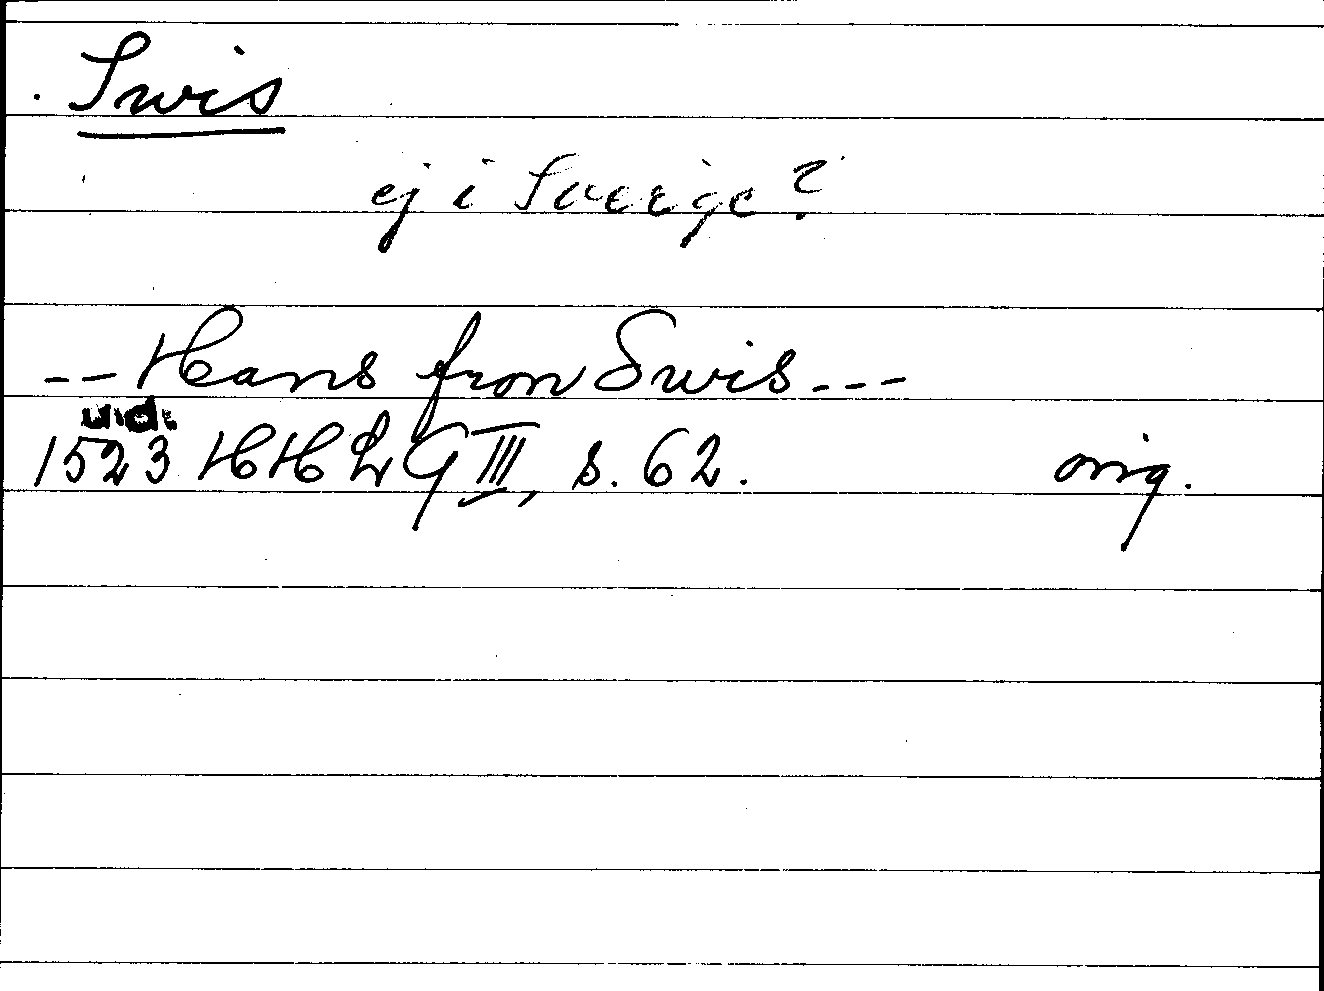 . Swis
ej i Sverige?
-- Hans fron Swis ---
u.d.
1523 HHLG III, s. 62. orig.